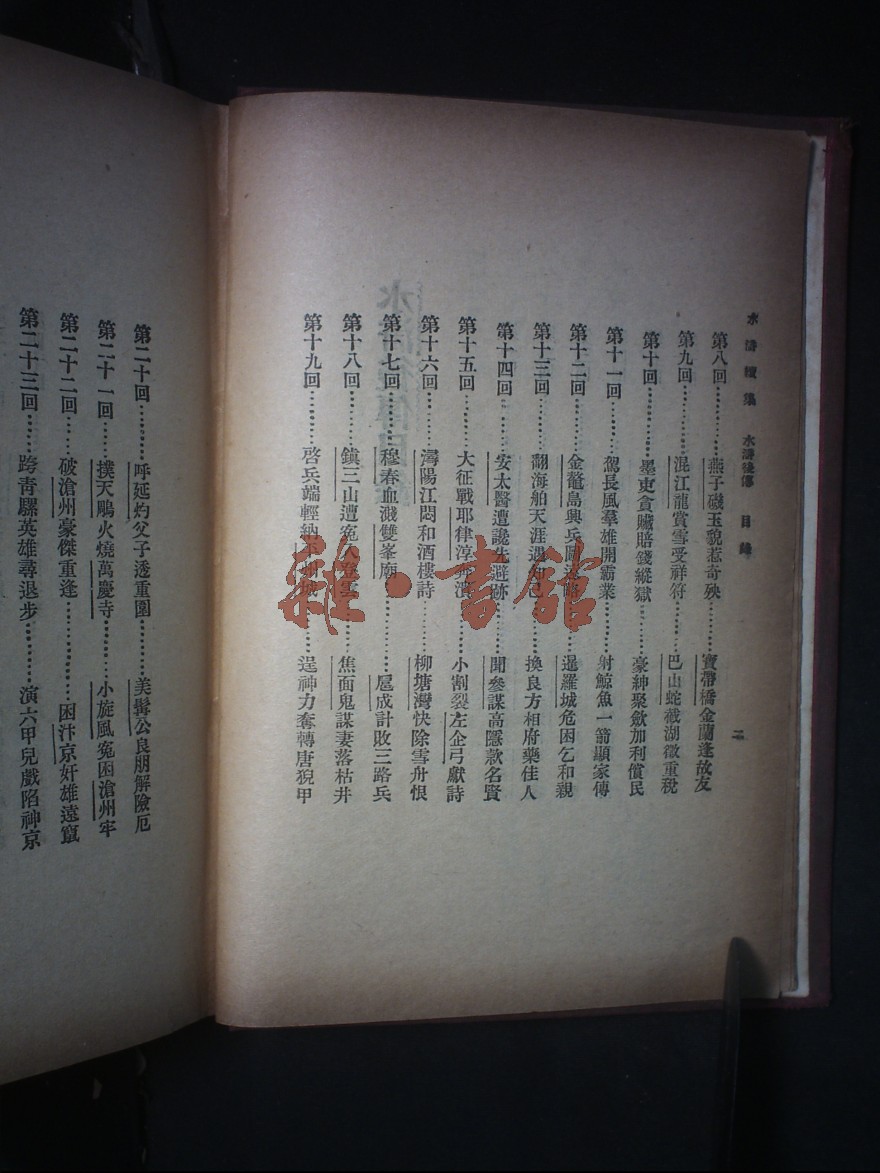 水滸續集　水滸後傳　目錄
二
第八回………燕子磯玉貌惹奇殃………寶帶橋金蘭逢故友
第九回………混江龍賞雪受祥符………巴山蛇截湖徵重稅
第十回………墨吏貪贓賠錢縱獄………豪紳聚斂加利償民
第十一回………駕長風羣雄開霸業………射鯨魚一箭顯家傳
第十二回………金鼇島興兵圖遠略………暹羅城危困乞和親
第十三回………翻海舶天涯遇知己………換良方相府藥佳人
第十四回………安太醫遭讒先避跡………聞參謀高隱款名賢
第十五回………大征戰耶律淳奔潰………小割裂左企弓獻詩
第十六回………潯陽江悶和酒樓詩………柳塘灣快除雪舟恨
第十七回………穆春血濺雙峯廟………扈成計敗三路兵
第十八回………鎮三山遭冤入登雲………焦面鬼謀妻落枯井
第十九回………啓兵端輕納平州城………逞神力奪轉唐猊甲
第二十回………呼延灼父子透重圍………美髯公良朋解險厄
第二十一回………撲天鵰火燒萬慶寺………小旋風冤困滄州牢
第二十二回………破滄州豪傑重逢………困汴京奸雄遠竄
第二十三回………跨青騾英雄尋退步………演六甲兒戲陷神京
雜·書館